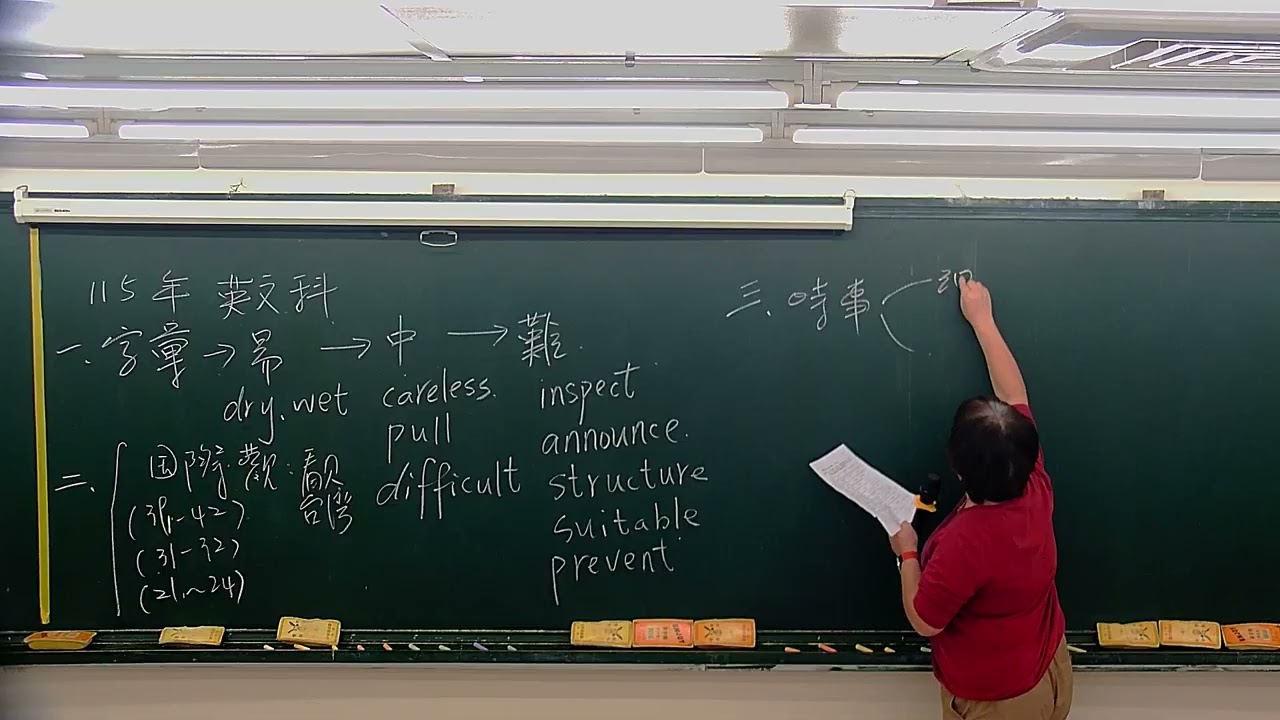 115年 英文科
一、字彙→易→中→難
dry. wet careless. inspect
pull announce.
二、国際觀：看見台灣 difficult structure
(39~42) suitable
(31-32) prevent
(21~24)
三、時事